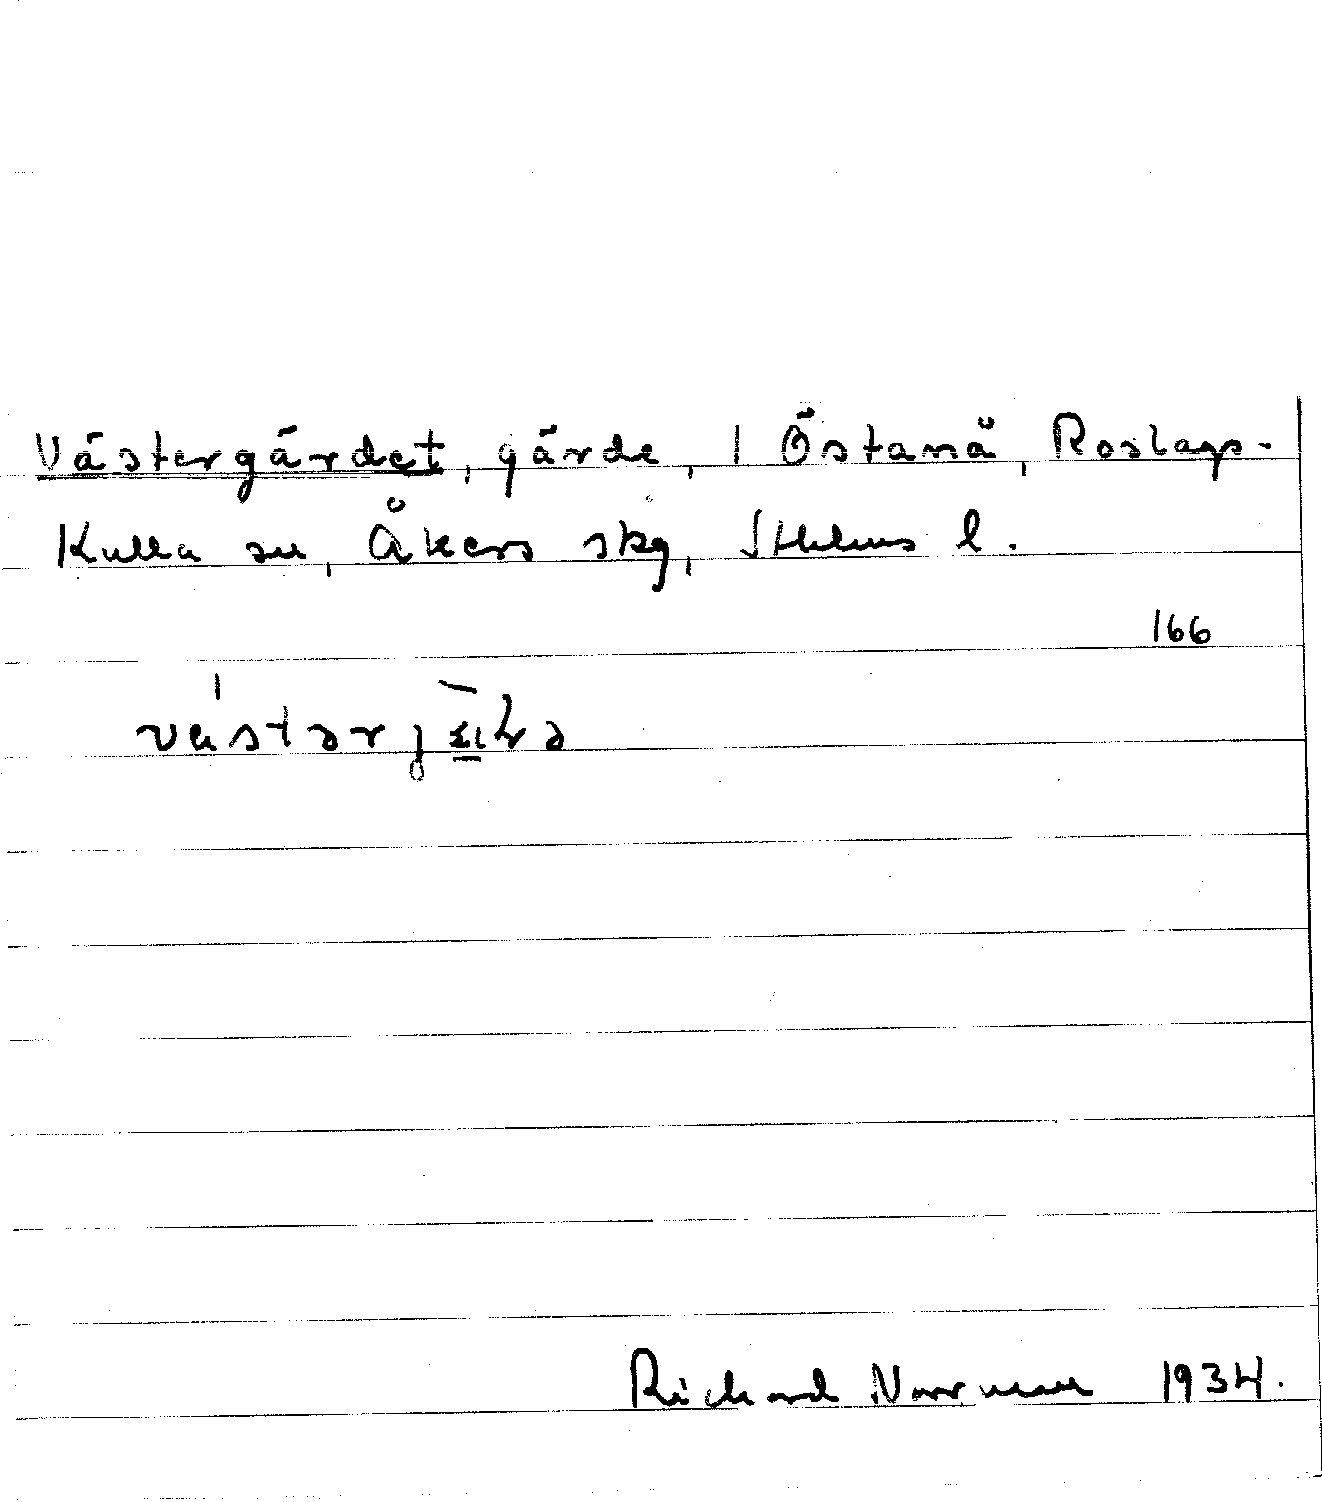 Västergärdet, gärde, 1 Östanå, Roslags-
Kulla sn, Åkers skg, Sthlms l.
166
Richard Norrman 1934.